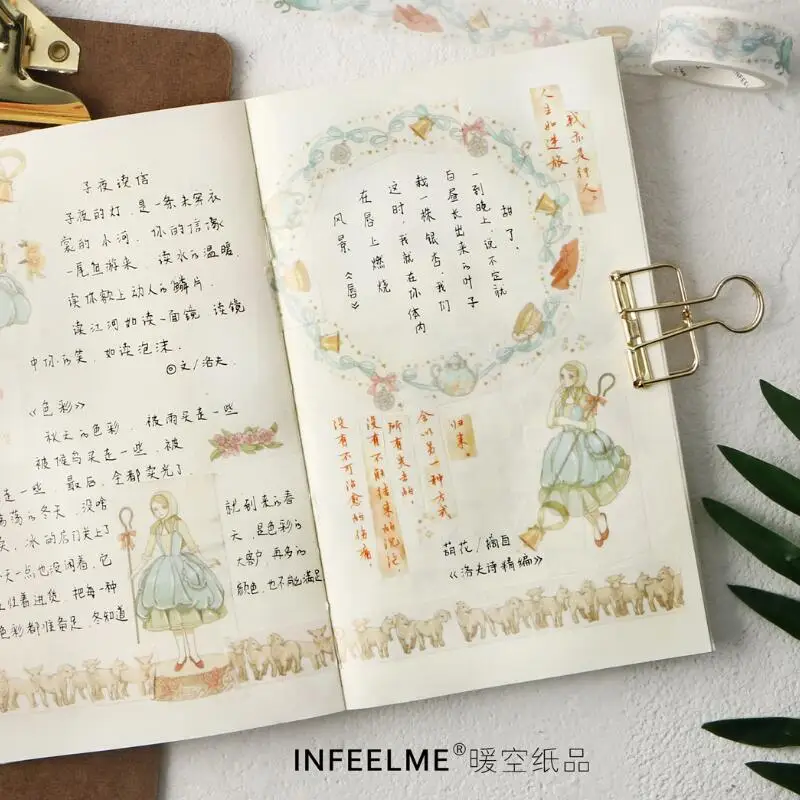 子夜读信
子夜的灯,是一条未穿衣
裳的小河,你的信像
一尾鱼游来,读水的温暖,
读你额上动人的鳞片,
读江河如读一面镜,读镜
中你的笑,如读泡沫.
◎文/洛夫.
《色彩》
秋天的色彩,被雨买走一些
被候鸟买走一些,被
走一些,最后,全都卖光了.
荡的冬天,没啥
卖,冰的店门关上了
天一点也没闲着,它
忙着进货,把每一种
色彩都准备足,冬知道
就到来的春
天,是色彩的
大客户,再多的
颜色,也不能满足
人生如逆旅,
我亦是行人。
风景《唇》
在唇上燃烧
这时,我就在你体内
栽一株银杏,我们
白昼长出来的叶子
一到晚上,说不定就
甜了。
没有不可治愈的伤痛,
没有不能结束的沉沦,
所有失去的,
会以另一种方式
归来。
花/摘自
《洛夫诗精编》
INFEELME®暖空纸品